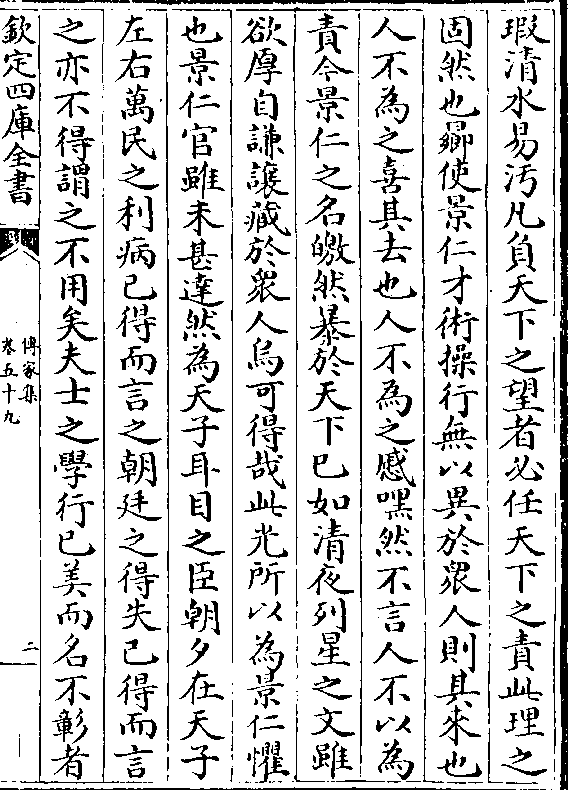 瑕清水易汚凡負天下之望者必任天下之責此理之
固然也曏使景仁才術操行無以異於衆人則其來也
人不為之喜其去也人不為之慼嘿然不言人不以為
責今景仁之名皦然暴於天下已如清夜列星之文雖
欲厚自謙讓藏於衆人烏可得哉此光所以為景仁懼
也景仁官雖未甚達然為天子耳目之臣朝夕在天子
左右萬民之利病已得而言之朝廷之得失已得而言
之亦不得謂之不用矣夫士之學行已美而名不彰者
欽定四庫全書
傳家集
卷五十九
二